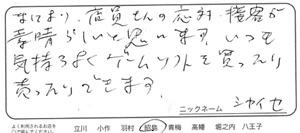 なにより、店員さんの応対・接客が
素晴らしいと思います。いつも
気持ちよくゲームソフトを買ったり
売ったりできます。
ニックネーム シャイセ
よく利用されるお店を
○で囲んでください 立川 小作 羽村 昭島 青梅 高幡 堀之内 八王子